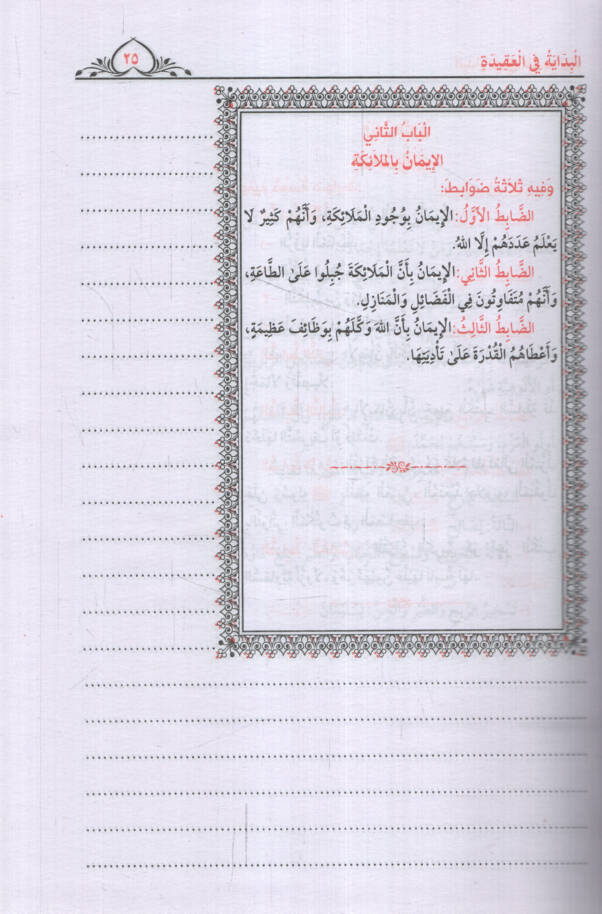 الْبِدَايَةُ فِي الْعَقِيدَةِ
٢٥
الْبَابُ الثَّانِي
الإِيمَانُ بِالمَلَائِكَةِ
وَفِيهِ ثَلَاثَةُ ضَوَابِطَ:
الضَّابِطُ الأَوَّلُ: الإِيمَانُ بِوُجُودِ المَلَائِكَةِ، وَأَنَّهُمْ كَثِيرٌ لَا
يَعْلَمُ عَدَدَهُمْ إِلَّا اللهُ.
الضَّابِطُ الثَّانِي: الإِيمَانُ بِأَنَّ الْمَلَائِكَةَ جُبِلُوا عَلَى الطَّاعَةِ،
وَأَنَّهُمْ مُتَفَاوِتُونَ فِي الْفَضَائِلِ وَالْمَنَازِلِ.
الضَّابِطُ الثَّالِثُ: الإِيمَانُ بِأَنَّ اللهَ وَكَّلَهُمْ بِوَظَائِفَ عَظِيمَةٍ،
وَأَعْطَاهُمُ الْقُدْرَةَ عَلَى تَأْدِيَتِهَا.